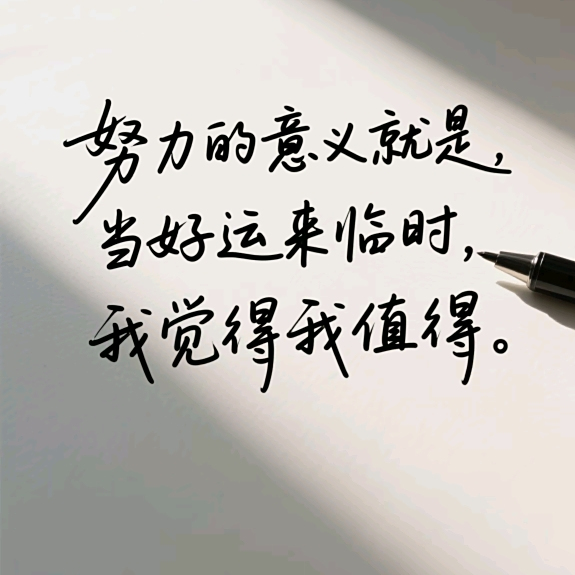 努力的意义就是,
当好运来临时,
我觉得我值得。